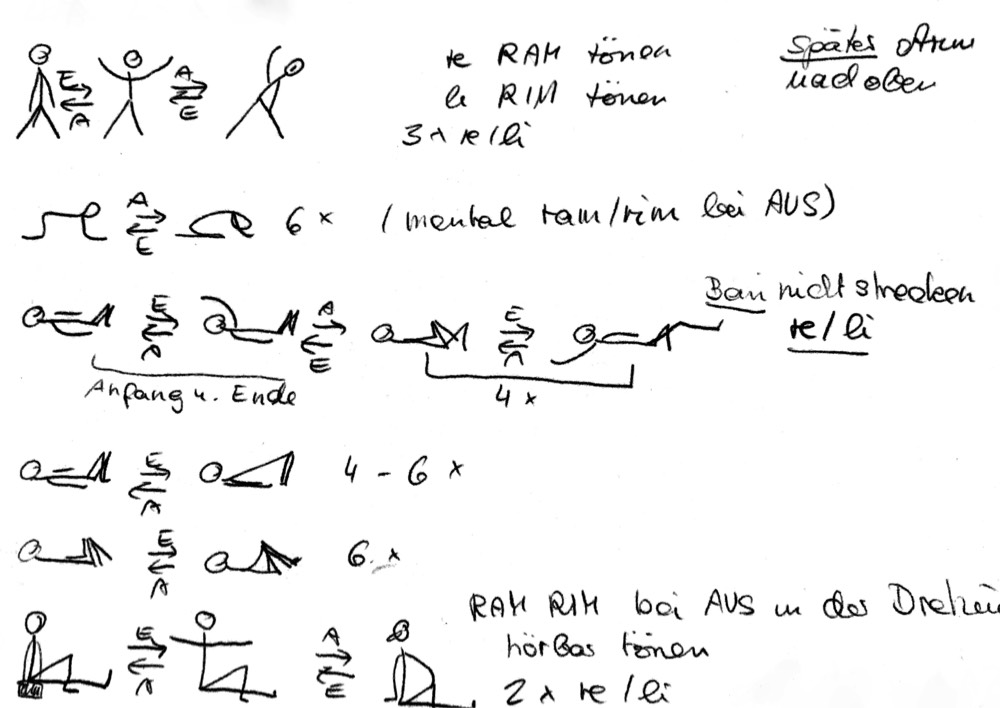 re RAM tönen
li RIM tönen
3 x re/li
spätes Arm
nach oben
E A
A E
A
E
6 x (mental ram/rim bei AUS)
Bein nicht strecken
re/li
E A E
A E A
Anfang u. Ende
4 x
E
A
4 - 6 x
E
A
6 x
RAM RIM bei AUS in der Drehung
hörbar tönen
2 x re/li
E A
A E